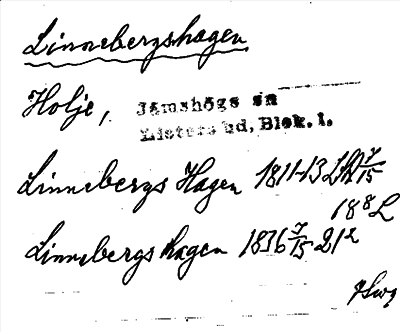 Linnebergshagen
Holje, Jämshögs sn
Listers hd, Blek. l.
Linnebergs Hagen 1811-13 LM 7/15
18⁸ L
Linnebergshagen 1836 7/15 21²